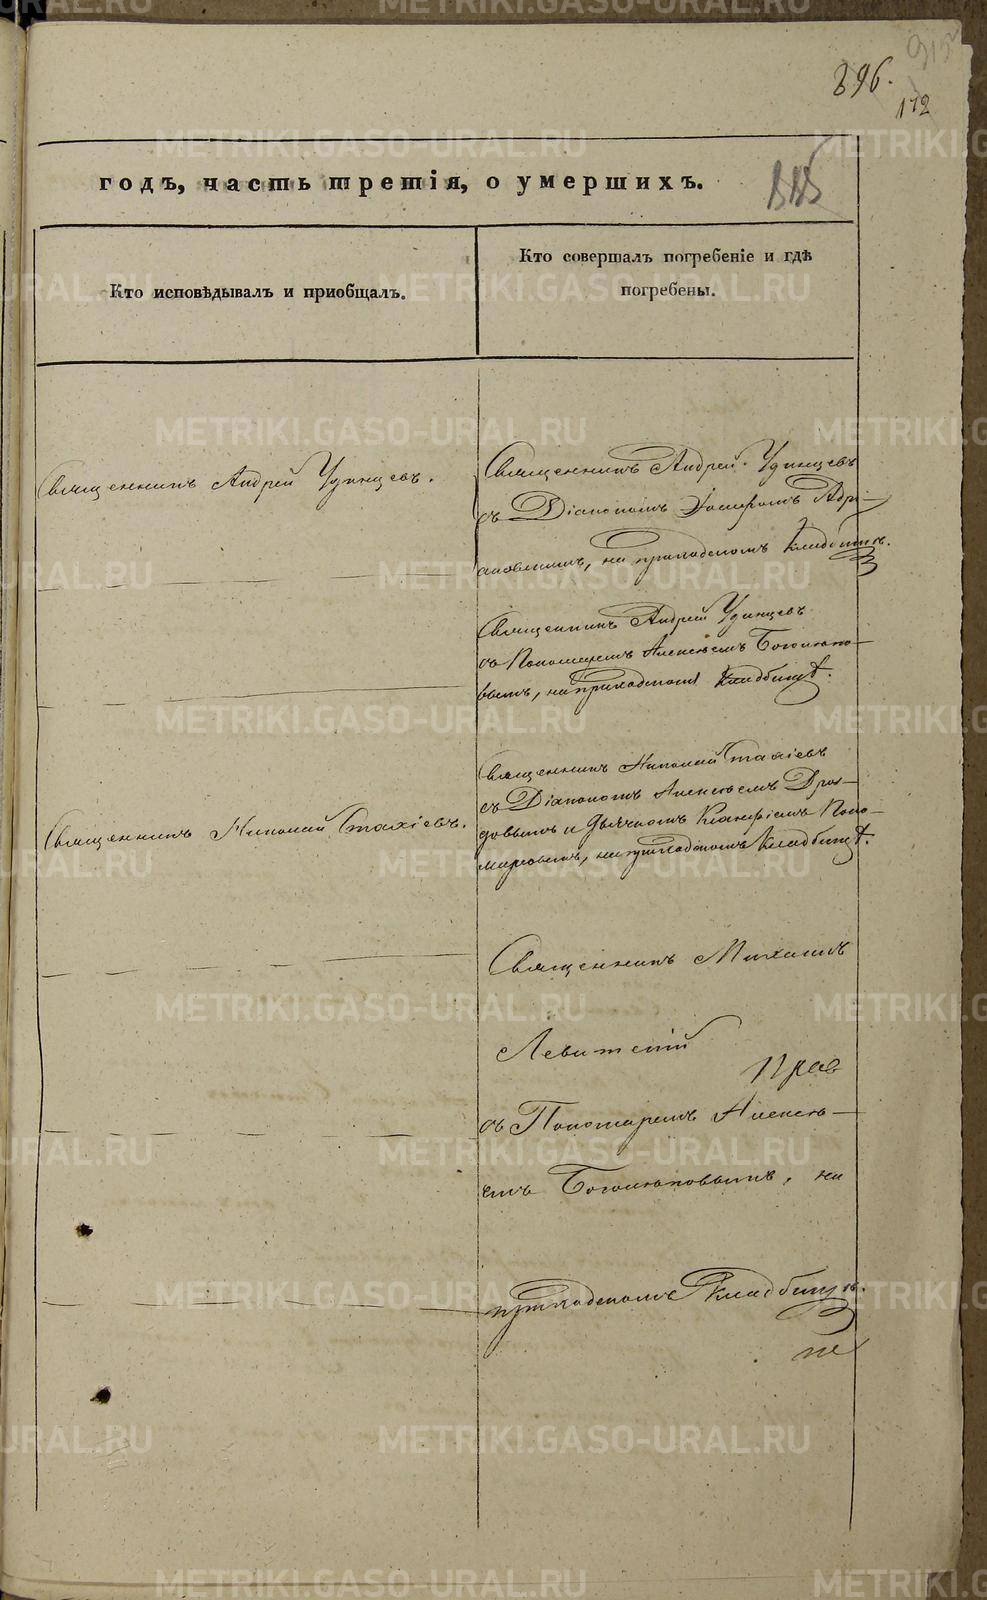 896.
172
годъ, часть третія, о умершихъ.
Кто исповѣдывалъ и приобщалъ.
Кто совершалъ погребеніе и гдѣ
погребены.
Священникъ Андрей Удинцевъ.
Священникъ Андрей Удинцевъ
съ Діакономъ
ановскимъ, на приходскомъ кладбищѣ.
Священникъ Андрей Удинцевъ
съ Пономаремъ Алексѣемъ Боголюпо-
вымъ, на приходскомъ кладбищѣ.
Священникъ Николай Стахіевъ.
Священникъ Николай Стахіевъ
съ Діакономъ Алексѣемъ Дроз-
довымъ и Дьячкомъ Поно-
маревымъ, на приходскомъ кладбищѣ.
Священникъ Михаилъ
Левитскій
съ Пономаремъ Алексѣ-
емъ Боголюповымъ, на
приходскомъ кладбищѣ.
METRIKI.GASO-URAL.RU